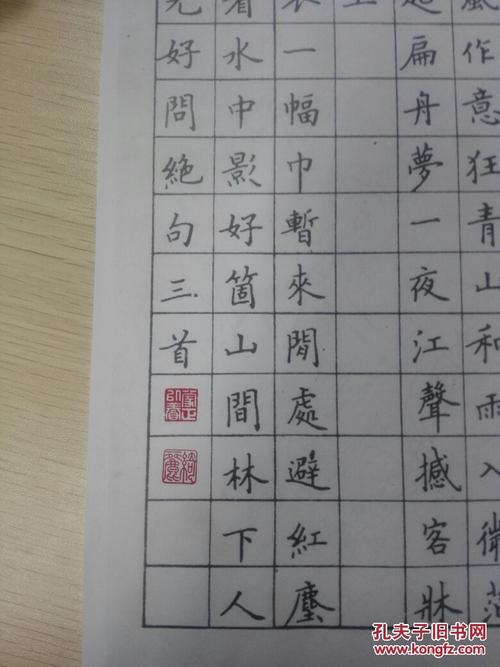 風作意狂青山和雨入微茫
起扁舟夢一夜江聲撼客牀
衣一幅巾暫來閒處避紅塵
看水中影好箇山間林下人
元好問絶句三首
孔夫子旧书网
www.kongfz.com